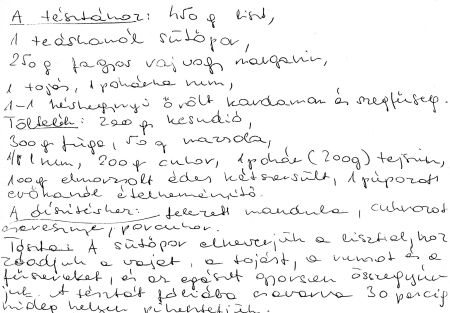 A tésztához: 450 g liszt,
1 teáskanál sütőpor,
250g fagyos vaj vagy margarin,
1 tojás, 1 pohárka rum,
1-1 késhegynyi őrölt kardamon és szegfűszeg.
Töltelék: 200 g kesudió,
300g füge, 50 g mazsola,
1/8 l rum, 200g cukor, 1 pohár (200g) tejszín,
100g elmorzsolt édes kétszersült, 1 púpozott
evőkanál ételkeményítő.
A díszítéshez: felezett mandula, cukrozott
cseresznye, porcukor.
Tészta: A sütőpor elkeverjük a liszttel, hoz
záadjuk a vajat, a tojást, a rumot és a
fűszereket, és az egészet gyorsan összegyúr
juk. A tésztát fóliába csavarva 30 percig
hideg helyen pihentetjük.